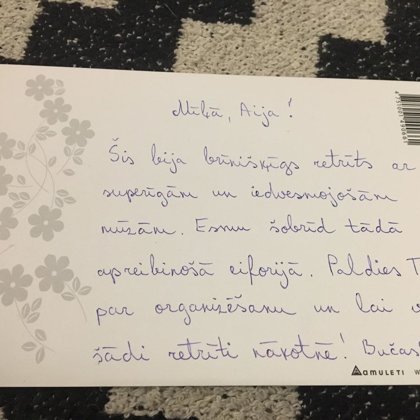 Mīļā, Aija!
Šis bija brīnišķīgs retrīts ar
superīgām un iedvesmojošām
mūzām. Esmu šobrīd tādā
apreibinošā eiforijā. Paldies T
par organizēšanu un lai v
šādi retrīti nākotnē! Bučas
amuleti W